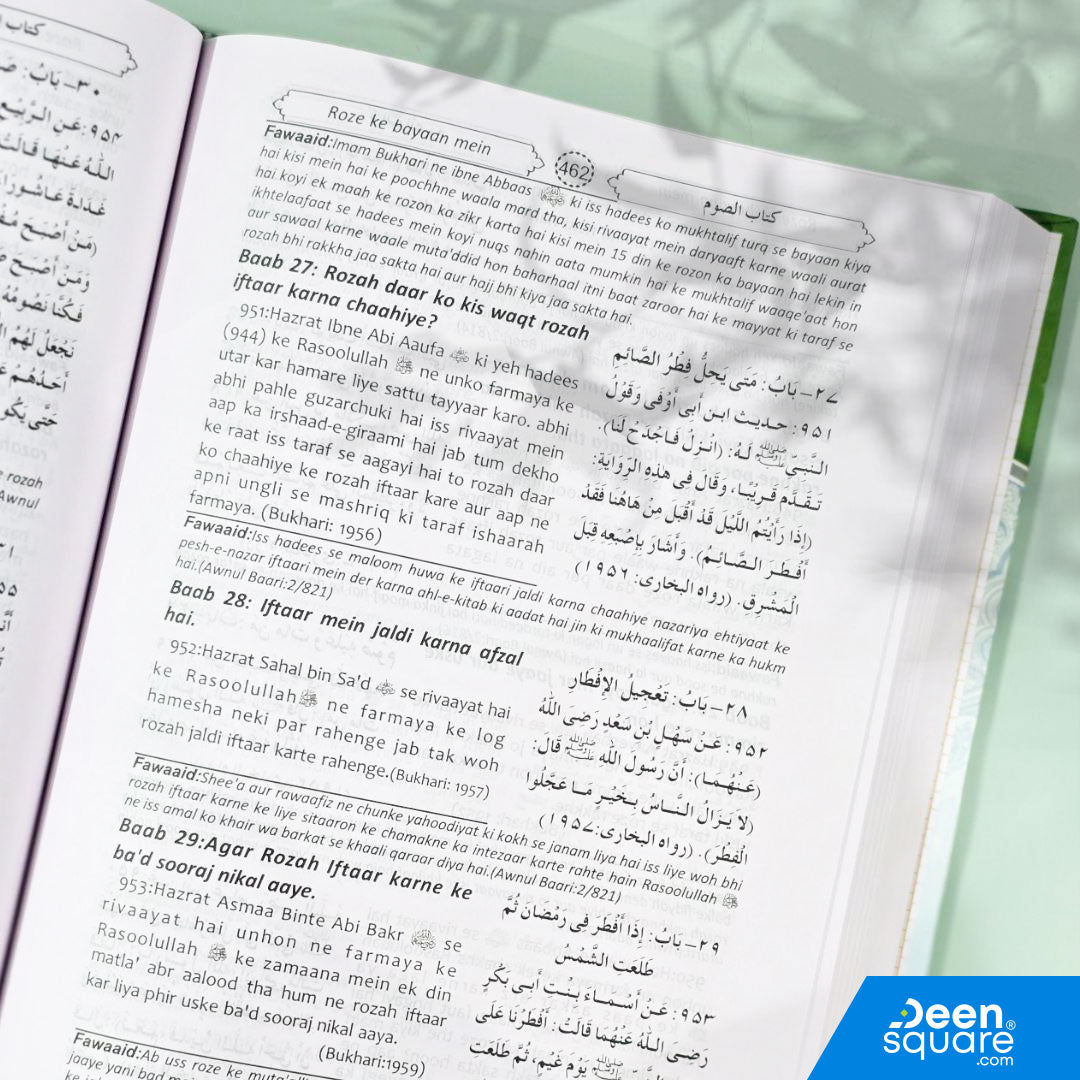 Roze ke bayaan mein
462
كتاب الصوم
Fawaaid:Imam Bukhari ne ibne Abbaas ki iss hadees ko mukhtalif turq se bayaan kiya
hai kisi mein hai ke poochhne waala mard tha, kisi rivaayat mein daryaaft karne waali aurat
hai koyi ek maah ke rozon ka zikr karta hai kisi mein 15 din ke rozon ka bayaan hai lekin in
ikhtelaafaat se hadees mein koyi nuqs nahin aata mumkin hai ke mukhtalif waaqe'aat hon
aur sawaal karne waale muta'ddid hon baharhaal itni baat zaroor hai ke mayyat ki taraf se
rozah bhi rakkha jaa sakta hai aur hajj bhi kiya jaa sakta hai.
Baab 27: Rozah daar ko kis waqt rozah
iftaar karna chaahiye?
951:Hazrat Ibne Abi Aaufa ki yeh hadees
(944) ke Rasoolullah ﷺ ne unko farmaya ke
utar kar hamare liye sattu tayyaar karo. abhi
abhi pahle guzarchuki hai iss rivaayat mein
aap ka irshaad-e-giraami hai jab tum dekho
ke raat iss taraf se aagayi hai to rozah daar
ko chaahiye ke rozah iftaar kare aur aap ne
apni ungli se mashriq ki taraf ishaarah
farmaya. (Bukhari: 1956)
٢٧ـ بَابُ: مَتَى يَحِلُّ فِطْرُ الصَّائِمِ
٩٥١ : حديث ابن أبي أَوْفَى وَقَوْلُ
النَّبِيِّ ﷺ لَهُ: (انْزِلْ فَاجْدَحْ لَنَا).
تَقَدَّمَ قَرِيْبًا، وَقَالَ فِي هَذِهِ الرِّوَايَةِ:
(إِذَا رَأَيْتُمُ اللَّيْلَ قَدْ أَقْبَلَ مِنْ هَاهُنَا فَقَدْ
أَفْطَرَ الصَّائِمُ). وَأَشَارَ بِإِصْبَعِهِ قِبَلَ
الْمَشْرِقِ. (رواه البخاری: ١٩٥٦)
Fawaaid:Iss hadees se maloom huwa ke iftaari jaldi karna chaahiye nazariya ehtiyaat ke
pesh-e-nazar iftaari mein der karna ahl-e-kitab ki aadat hai jin ki mukhaalifat karne ka hukm
hai.(Awnul Baari:2/821)
Baab 28: Iftaar mein jaldi karna afzal
hai.
952:Hazrat Sahal bin Sa'd se rivaayat hai
ke Rasoolullah ﷺ ne farmaya ke log
hamesha neki par rahenge jab tak woh
rozah jaldi iftaar karte rahenge.(Bukhari: 1957)
٢٨ـ بَابُ: تَعْجِيلُ الإِفْطَارِ
٩٥٢ : عَنْ سَهْلِ بْنِ سَعْدٍ رَضِيَ اللهُ
عَنْهُمَا): أَنَّ رَسُولَ اللهِ ﷺ قَالَ:
(لاَ يَزَالُ النَّاسُ بِخَيْرٍ مَا عَجَّلُوا
الْفِطْرَ). (رواه البخاری: ١٩٥٧)
Fawaaid:Shee'a aur rawaafiz ne chunke yahoodiyat ki kokh se janam liya hai iss liye woh bhi
rozah iftaar karne ke liye sitaaron ke chamakne ka intezaar karte rahte hain Rasoolullah ﷺ
ne iss amal ko khair wa barkat se khaali qaraar diya hai.(Awnul Baari:2/821)
Baab 29:Agar Rozah Iftaar karne ke
ba'd sooraj nikal aaye.
953:Hazrat Asmaa Binte Abi Bakr se
rivaayat hai unhon ne farmaya ke
Rasoolullah ﷺ ke zamaana mein ek din
matla' abr aalood tha hum ne rozah iftaar
kar liya phir uske ba'd sooraj nikal aaya.
(Bukhari:1959)
٢٩ـ بَابُ: إِذَا أَفْطَرَ فِي رَمْضَانَ ثُمَّ
طَلَعَتِ الشَّمْسُ
٩٥٣ : عَنْ أَسْمَاءَ بِنْتِ أَبِي بَكْرٍ
رَضِيَ اللهُ عَنْهُمَا قَالَتْ: أَفْطَرْنَا عَلَى
ﷺ يَوْمَ غَيْمٍ، ثُمَّ طَلَعَتِ
Fawaaid:Ab uss roze ke
jaaye yani bad
Deen
square®
.com